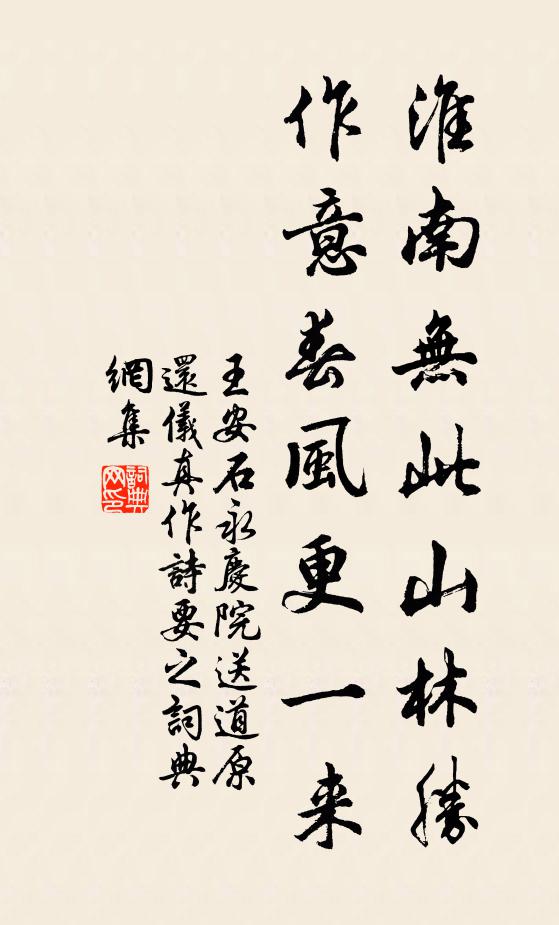 淮南無此山林勝
作意春風更一来
王安石永慶院送道原
還儀真作詩要之詞典
網集
詞典
网印